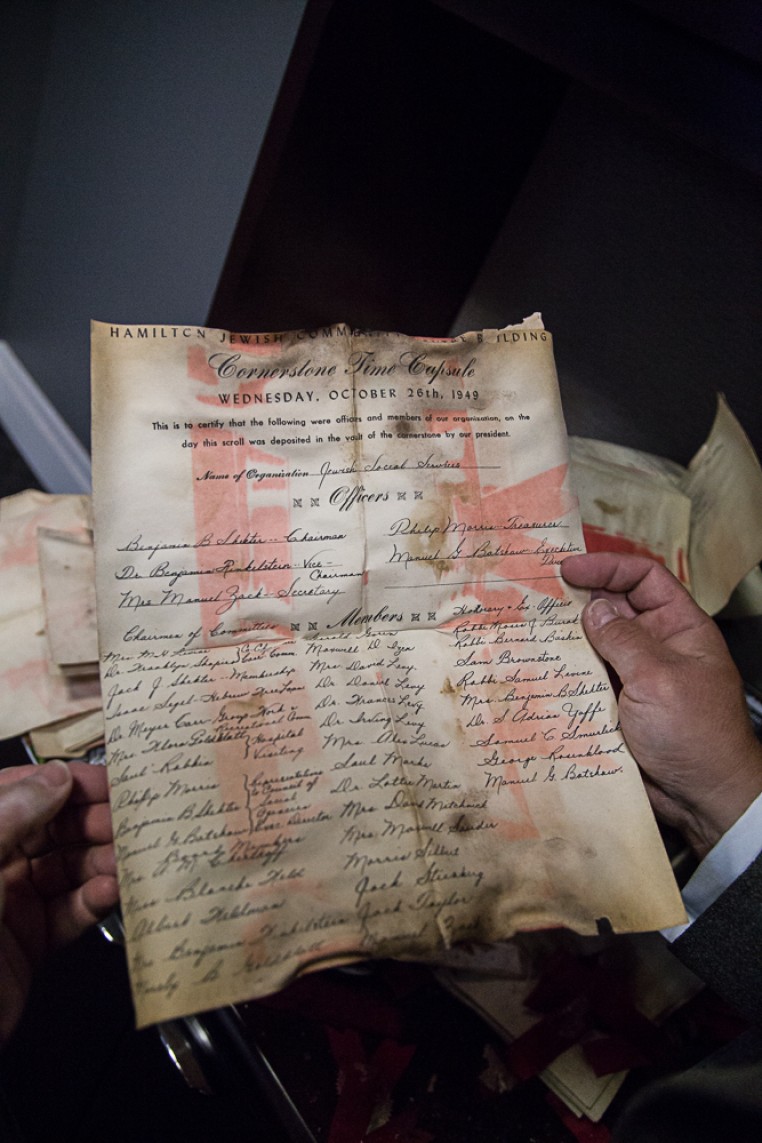 HAMILTON JEWISH COMMUNITY BUILDING
Cornerstone Time Capsule
WEDNESDAY, OCTOBER 26th, 1949
This is to certify that the following were officers and members of our organization, on the
day this scroll was deposited in the vault of the cornerstone by our president.
Name of Organization Jewish Social Services
Officers
Benjamin B Shekter -- Chairman
Dr. Benjamin Finkelstein -- Vice-
Chairman
Mrs Manuel Zack -- Secretary
Philip Morris - Treasurer
Manuel G. Batshaw Executive
Members
Chairmen of Committees
Mrs.
Dr. Franklyn Shapiro Case Comm.
Jack J. Shekter - Membership
Isaac Segel - Hebrew Free Loan
Dr. Meyer Carr - Group Work &
Recreational Comm
Mrs Flora Goldblatt Hospital
Saul Rabkin Visiting
Philip Morris
Benjamin B. Shekter
Manuel G. Batshaw Exec. Director
Representatives
to Council of
Social
Board Members
Mrs
Miss Blanche Held
Mrs Benjamin Finkelstein
Goldblatt
Maxwell D.
Mrs. David Levy.
Dr. Daniel Levy
Dr. Frances Levy
Dr. Irving Levy
Mrs Alex Lucas
Saul Marks
Dr. Lottie Martin
Mrs Dave
Mrs. Maxwell
Morris
Jack
Jack Taylor
Manuel Zack
Honorary & Ex-Officio
Rabbi Moses J.
Rabbi Bernard Baskin
Sam Brownstone
Rabbi Samuel Levine
Mrs. Benjamin B Shekter
Dr. S Adrian Yaffe
Samuel C.
George Rosenblood
Manuel G. Batshaw.